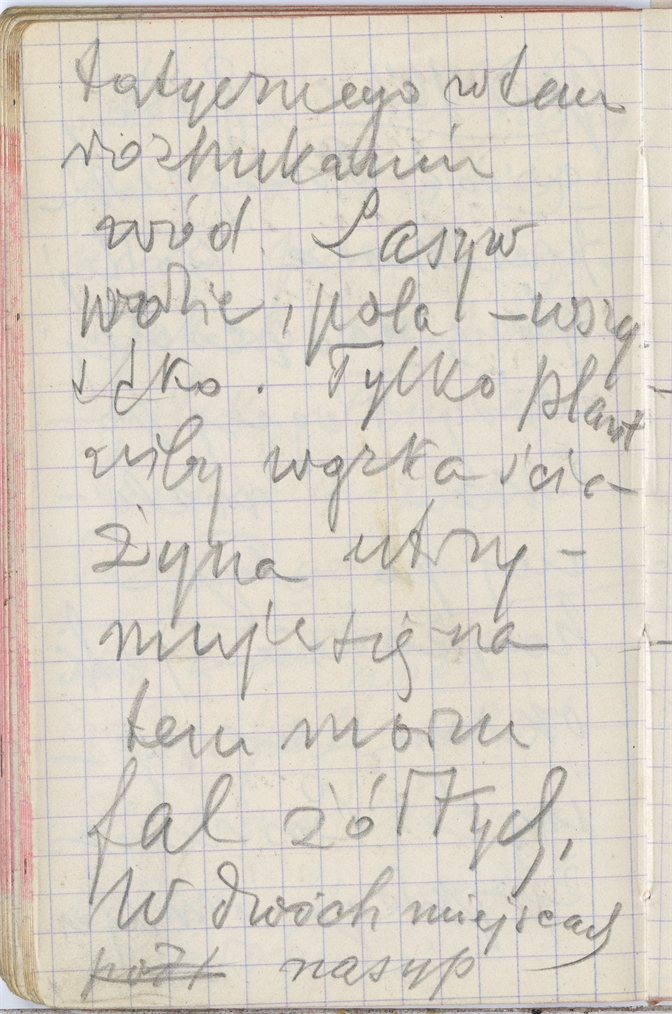 tastycznego w tem
rozpukaniu
wód. Lasy w
wodzie, pola – wszy
stko. Tylko plant
niby wązka ścia
żyna utrzy-
muje się na
tem morzu
fal żółtych,
W dwóch miejscach
nasyp